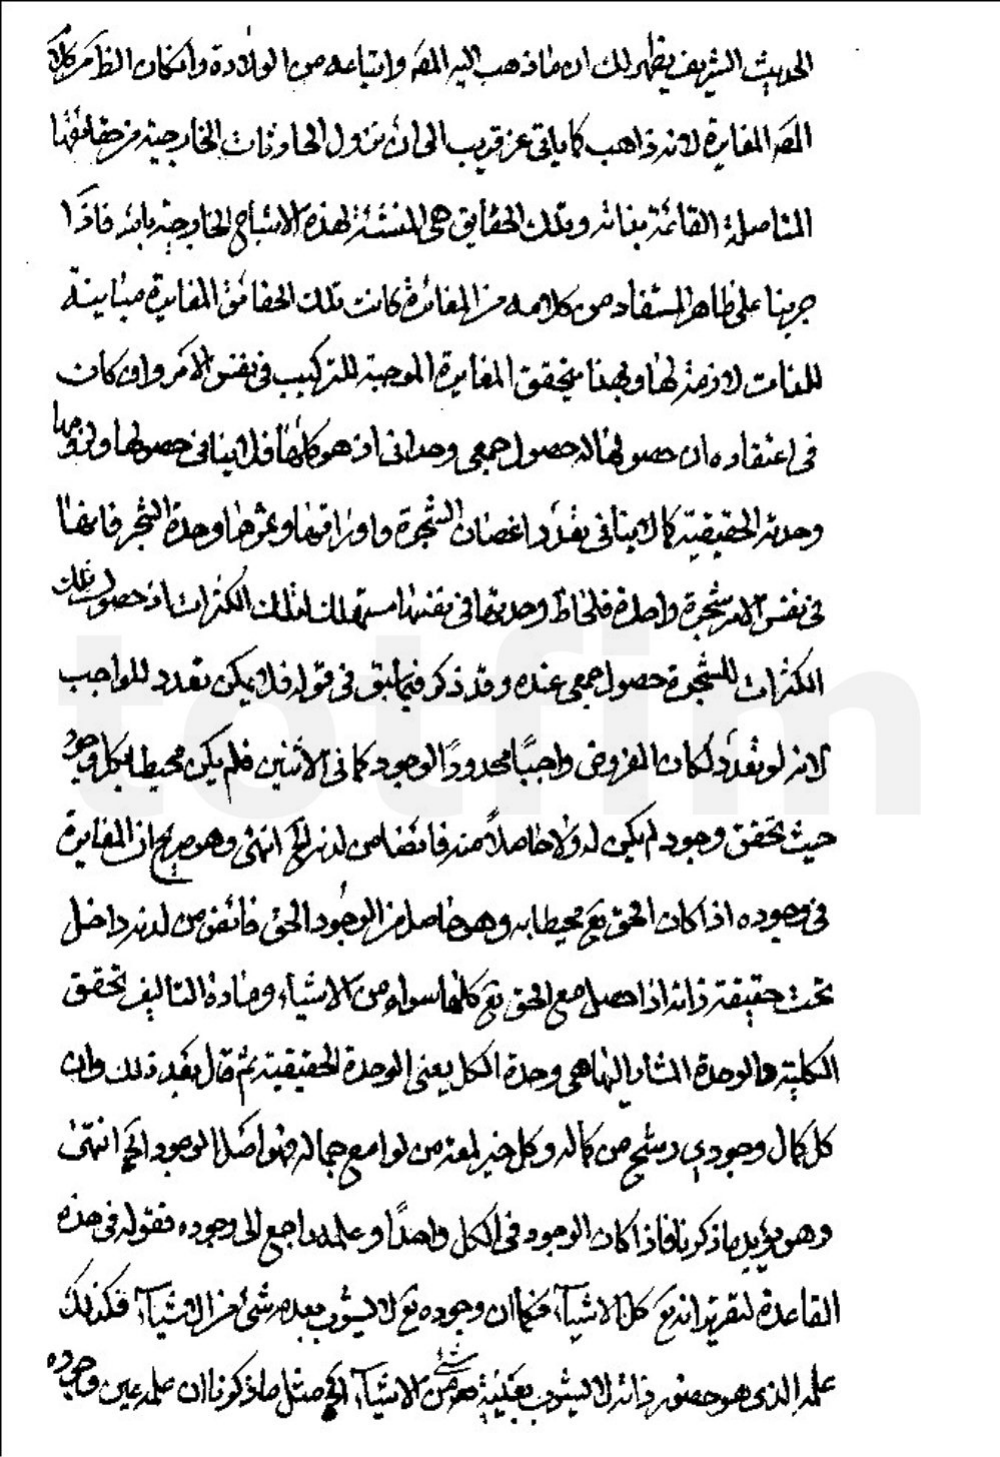 الحديث الشريف يظهر لك ان ما ذهب اليه المصَ واتباعه من الولادة وامكان الظاهر كلام
المصَ المغايرة لانه ذاهب كما ياتى عن قريب الى ان تنزل الحادثات الخارجية من حقائقها
المتاصلة القائمة بذاته وتلك الحقايق هى المنشئة لهذه الاشباح الخارجية بامره فاذا
جرينا على ظاهر المستفاد من كلامه من المغايرة كانت تلك الحقائق المغايرة مباينة
للذات لازمة لها وبهذا يتحقق المغايرة الموجبة للتركيب فى نفس الامر وان كان
فى اعتقاده ان حصولها له حصول جمعى وحدانى اذ هو كلها فلا ينافى حصولها ولزومها
وحدته الحقيقية كما لا ينافى تعدّد اغصان الشجرة واوراقها وثمرها وحدة الشجر فانها
فى نفس الامر شجرة واحدة فلحاظ وحدتها فى نفسها مستهلك لتلك الكثرات اذ حصول تلك
الكثرات للشجرة حصول جمعى عنده وقد ذكر فيما سبق فى قوله فلا يمكن تعدد للواجب
لانه لو تعدّد لكان المفروض واجبًا محدودًا لوجود كما فى الاثنين فلم يكن محيطا بكل وجود
حيث تحقق وجود لم يكن له ولا حاصلاً منه فائضا من لدنه الخ انتهى وهو صريح ان المغايرة
فى وجوده اذا كان الحق تع محيطا به وهو حاصل من الوجود الحق فائض من لدنه داخل
تحت حقيقة ذاته اذا حصل مع الحق تع كلما سواه من الاشياء ومادة التاليف تحقق
الكلية والوحدة المشار اليها هى وحدة الكل يعنى الوحدة الحقيقية ثم قال بعد ذلك وان
كل كمال وجودي رشح من كماله وكل خير لمعة من لوامع جماله فهو اصل الوجود الخ انتهى
وهو يؤيد ما ذكرنا فاذا كان الوجود فى الكل واحدًا وعلمه راجع الى وجوده فقوله فى هذه
القاعدة لتقريره انه تع كل الاشيآء فكما ان وجوده تع لا يشوب بعدم شئ من الاشيآء فكذلك
علمه الذى هو حضور ذاته لا يشوب بغيبة شئ من الاشيآء الخ مثل ما ذكرنا ان علمه عين وجوده
totfim